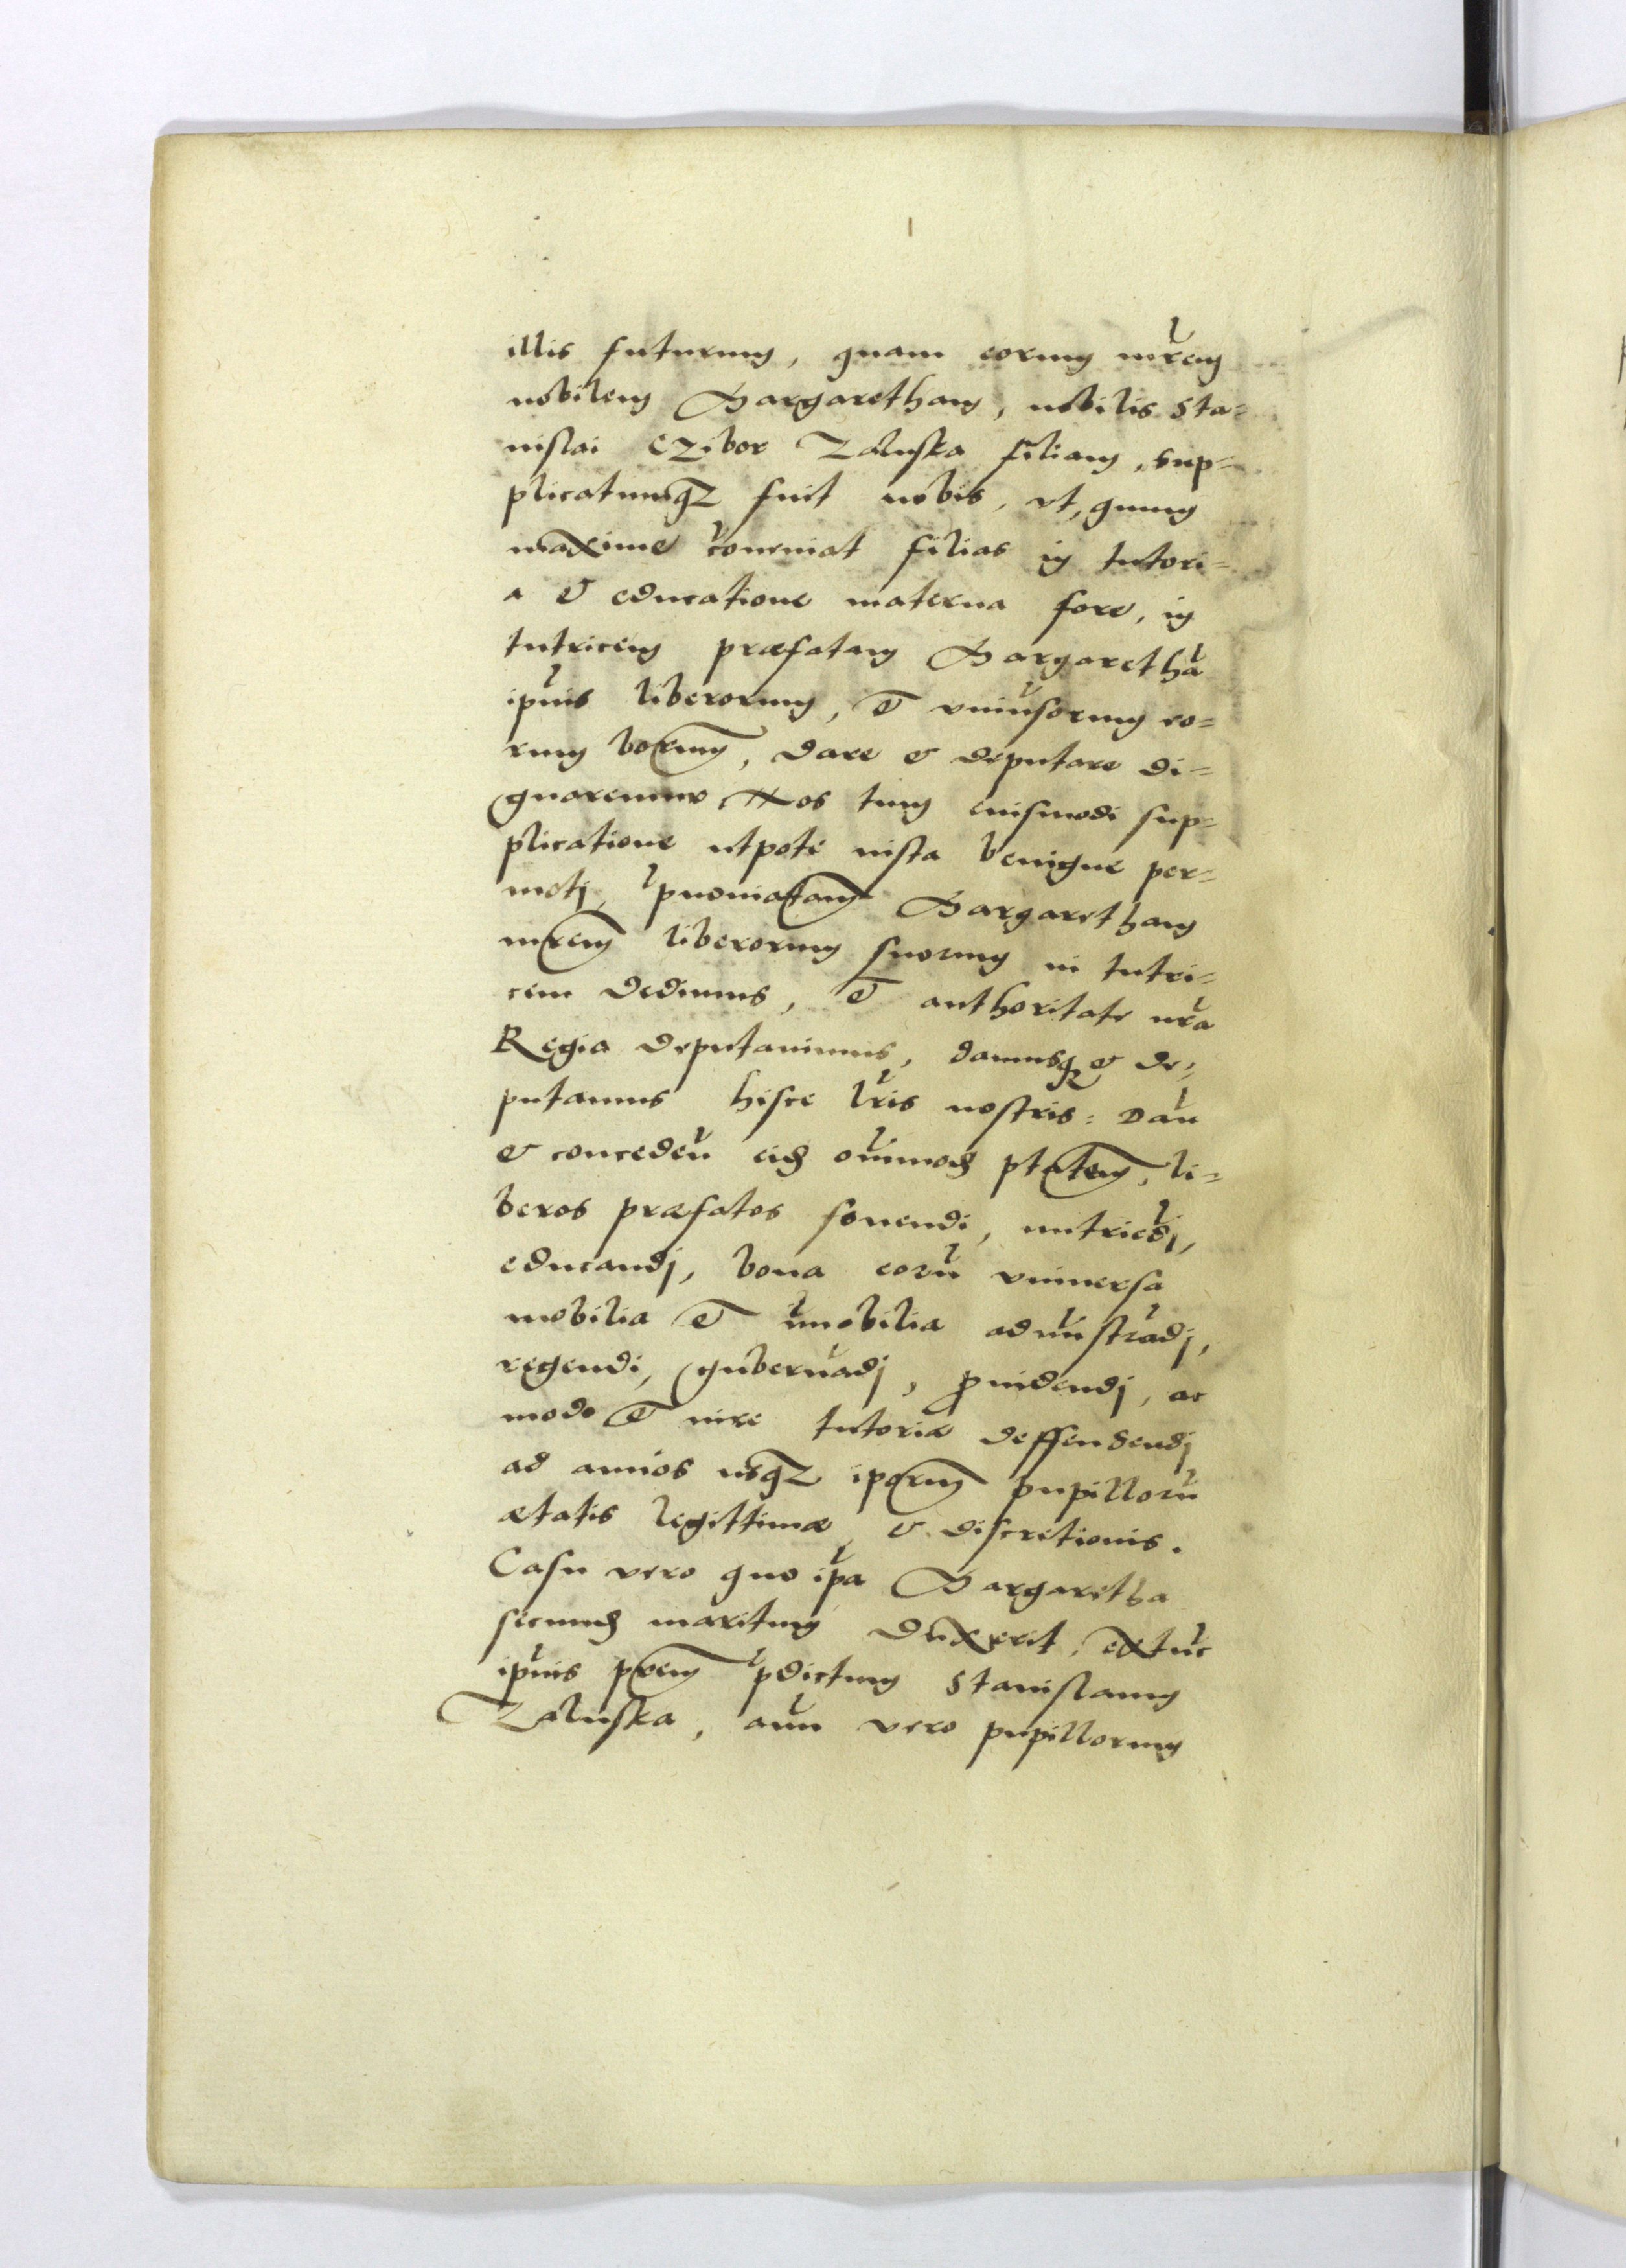 illis futurum, quam eorum mr̃em
nobilem Margaretham, nobilis Sta=
nislai Czibor Zaluska filiam, sup=
plicatumqʒ fuit nobis, vt, quum
maxime cõueniat filias in tutori=
a & educatione materna fore, in
tutricem præfatam Margarethã
ip̃ius liberorum, et vniũsorum eo=
rum bor̃um, dare & deputare di=
gnaremur Nos tum eiusmodi sup=
plicatione utpote iusta benigne per=
moti, p̃noĩatam Margaretham
mr̃em liberorum suorum in tutri=
cem dedimus, et authoritate nr̃a
Regia deputauimus, damusqʒ & de=
putamus hisce lr̃is nostris: Dañ
& concedeñ eid̃ om̃imod̃ ptãtem, li=
beros præfatos fouendi, nutriẽdj,
educandj, bona eorũ vniuersa
mobilia et im̃obilia adm̃istrãdj,
regendi, gubernãdj, ꝓuidendj, ac
modo et iure tutoriæ deffendendj
ad annos usqʒ ip̃orum pupillorũ
ætatis legittimæ & discretionis.
Casu vero quo ip̃a Margaretha
secund̃ maritum duxerit, extũc
ip̃ius pr̃em p̃dictum Stanislaum
Zaluska, auũ vero pupillorum